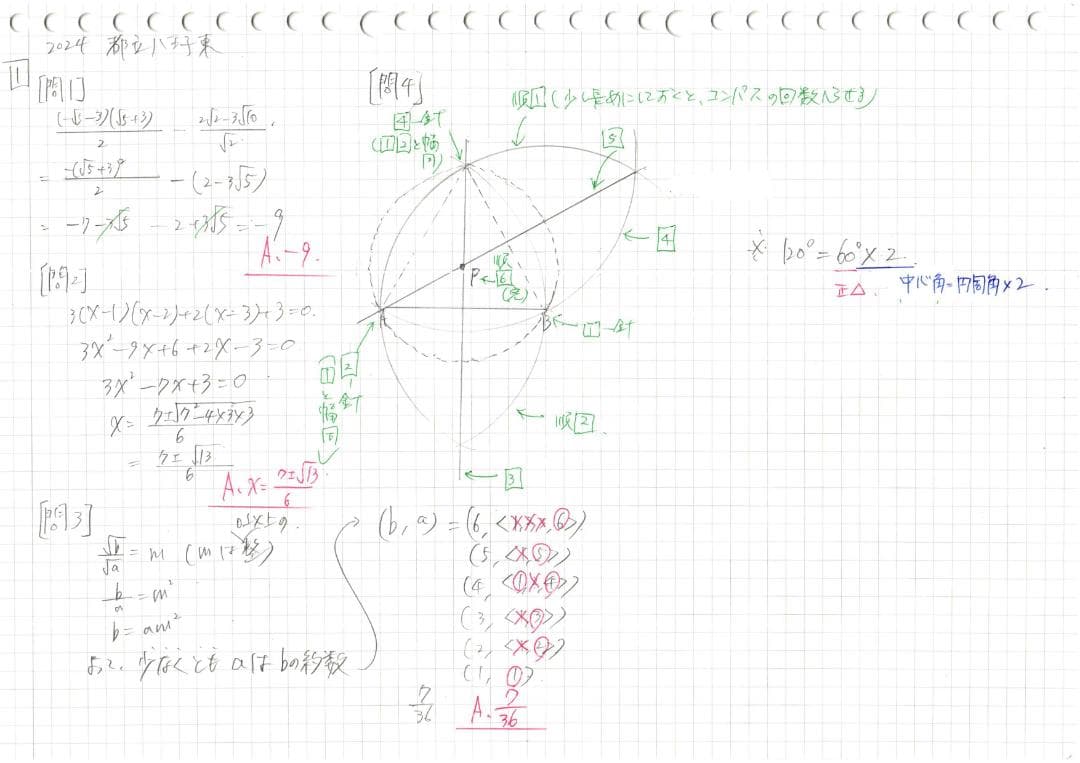 2024 都立八王子東
1
[問1]
(-√5-3)(√5+3)/2 - (2√2-3√10)/√2
= -(√5+3)²/2 - (2-3√5)
= -7-3√5 -2+3√5 = -9
A. -9.
[問2]
3(x-1)(x-2)+2(x-3)+3=0.
3x²-9x+6+2x-3=0
3x²-7x+3=0
x= (7±√7²-4×3×3)/6
= (7±√13)/6
A. x= (7±√13)/6
[問3]
√b/√a = m (mは整)
b/a = m²
b=am²
よって、少なくともaはbの約数
(b, a) = (6, <×,×,×,⑥>)
(5, <×,⑤>)
(4, <①,×,④>)
(3, <×,③>)
(2, <×,②>)
(1, ①)
7/36
A. 7/36
[問4]
順1(少し長めにしておくと、コンパスの回数へらせる)
4 針
(1 2と幅同)
5
4
P
順6(完)
A
B
1 針
2 針
1と幅同
順2
3
※ 120°=60°×2.
正△. 中心角=円周角×2.